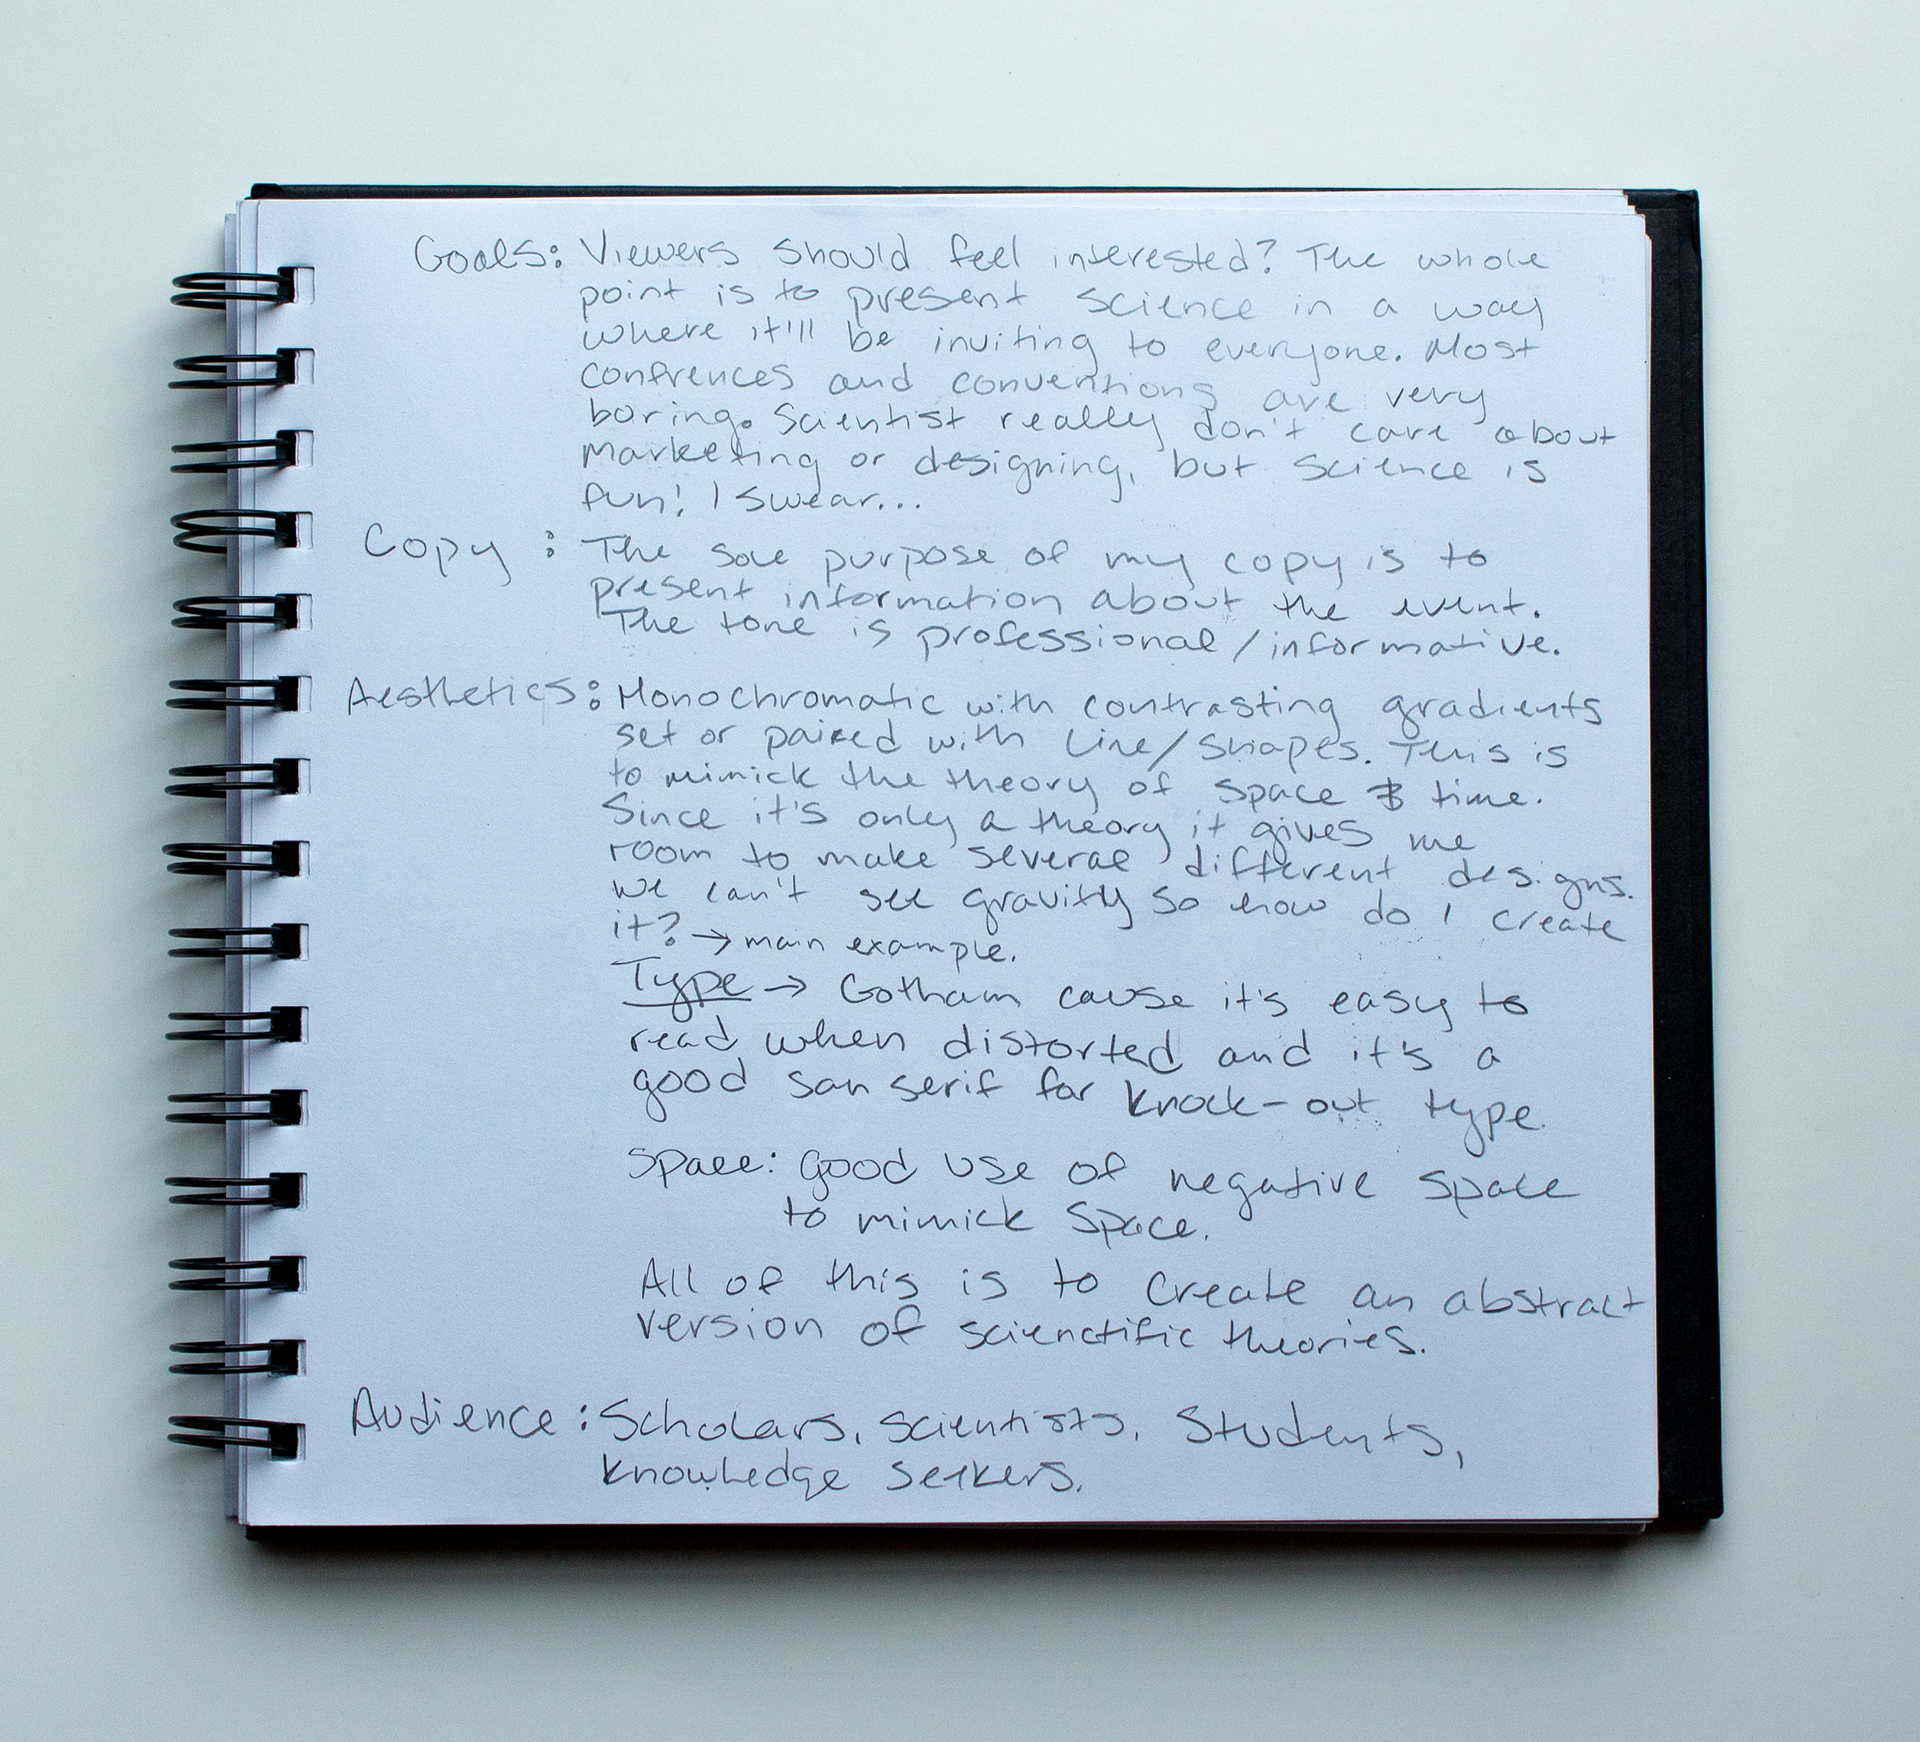 Goals: Viewers should feel interested? The whole
point is to present science in a way
where it'll be inviting to everyone. Most
confrences and conventions are very
boring. Scientist really don't care about
marketing or designing, but science is
fun! I swear...
Copy : The sole purpose of my copy is to
present information about the event.
The tone is professional/informative.
Aesthetics: Monochromatic with contrasting gradients
set or paired with line/shapes. This is
to mimick the theory of space & time.
Since it's only a theory it gives me
room to make several different designs.
We can't see gravity so how do I create
it? → main example.
Type → Gotham cause it's easy to
read when distorted and it's a
good san serif for knock-out type.
Space: good use of negative space
to mimick space.
All of this is to create an abstract
version of scienctific theories.
Audience : Scholars, scientists, Students,
knowledge seekers.